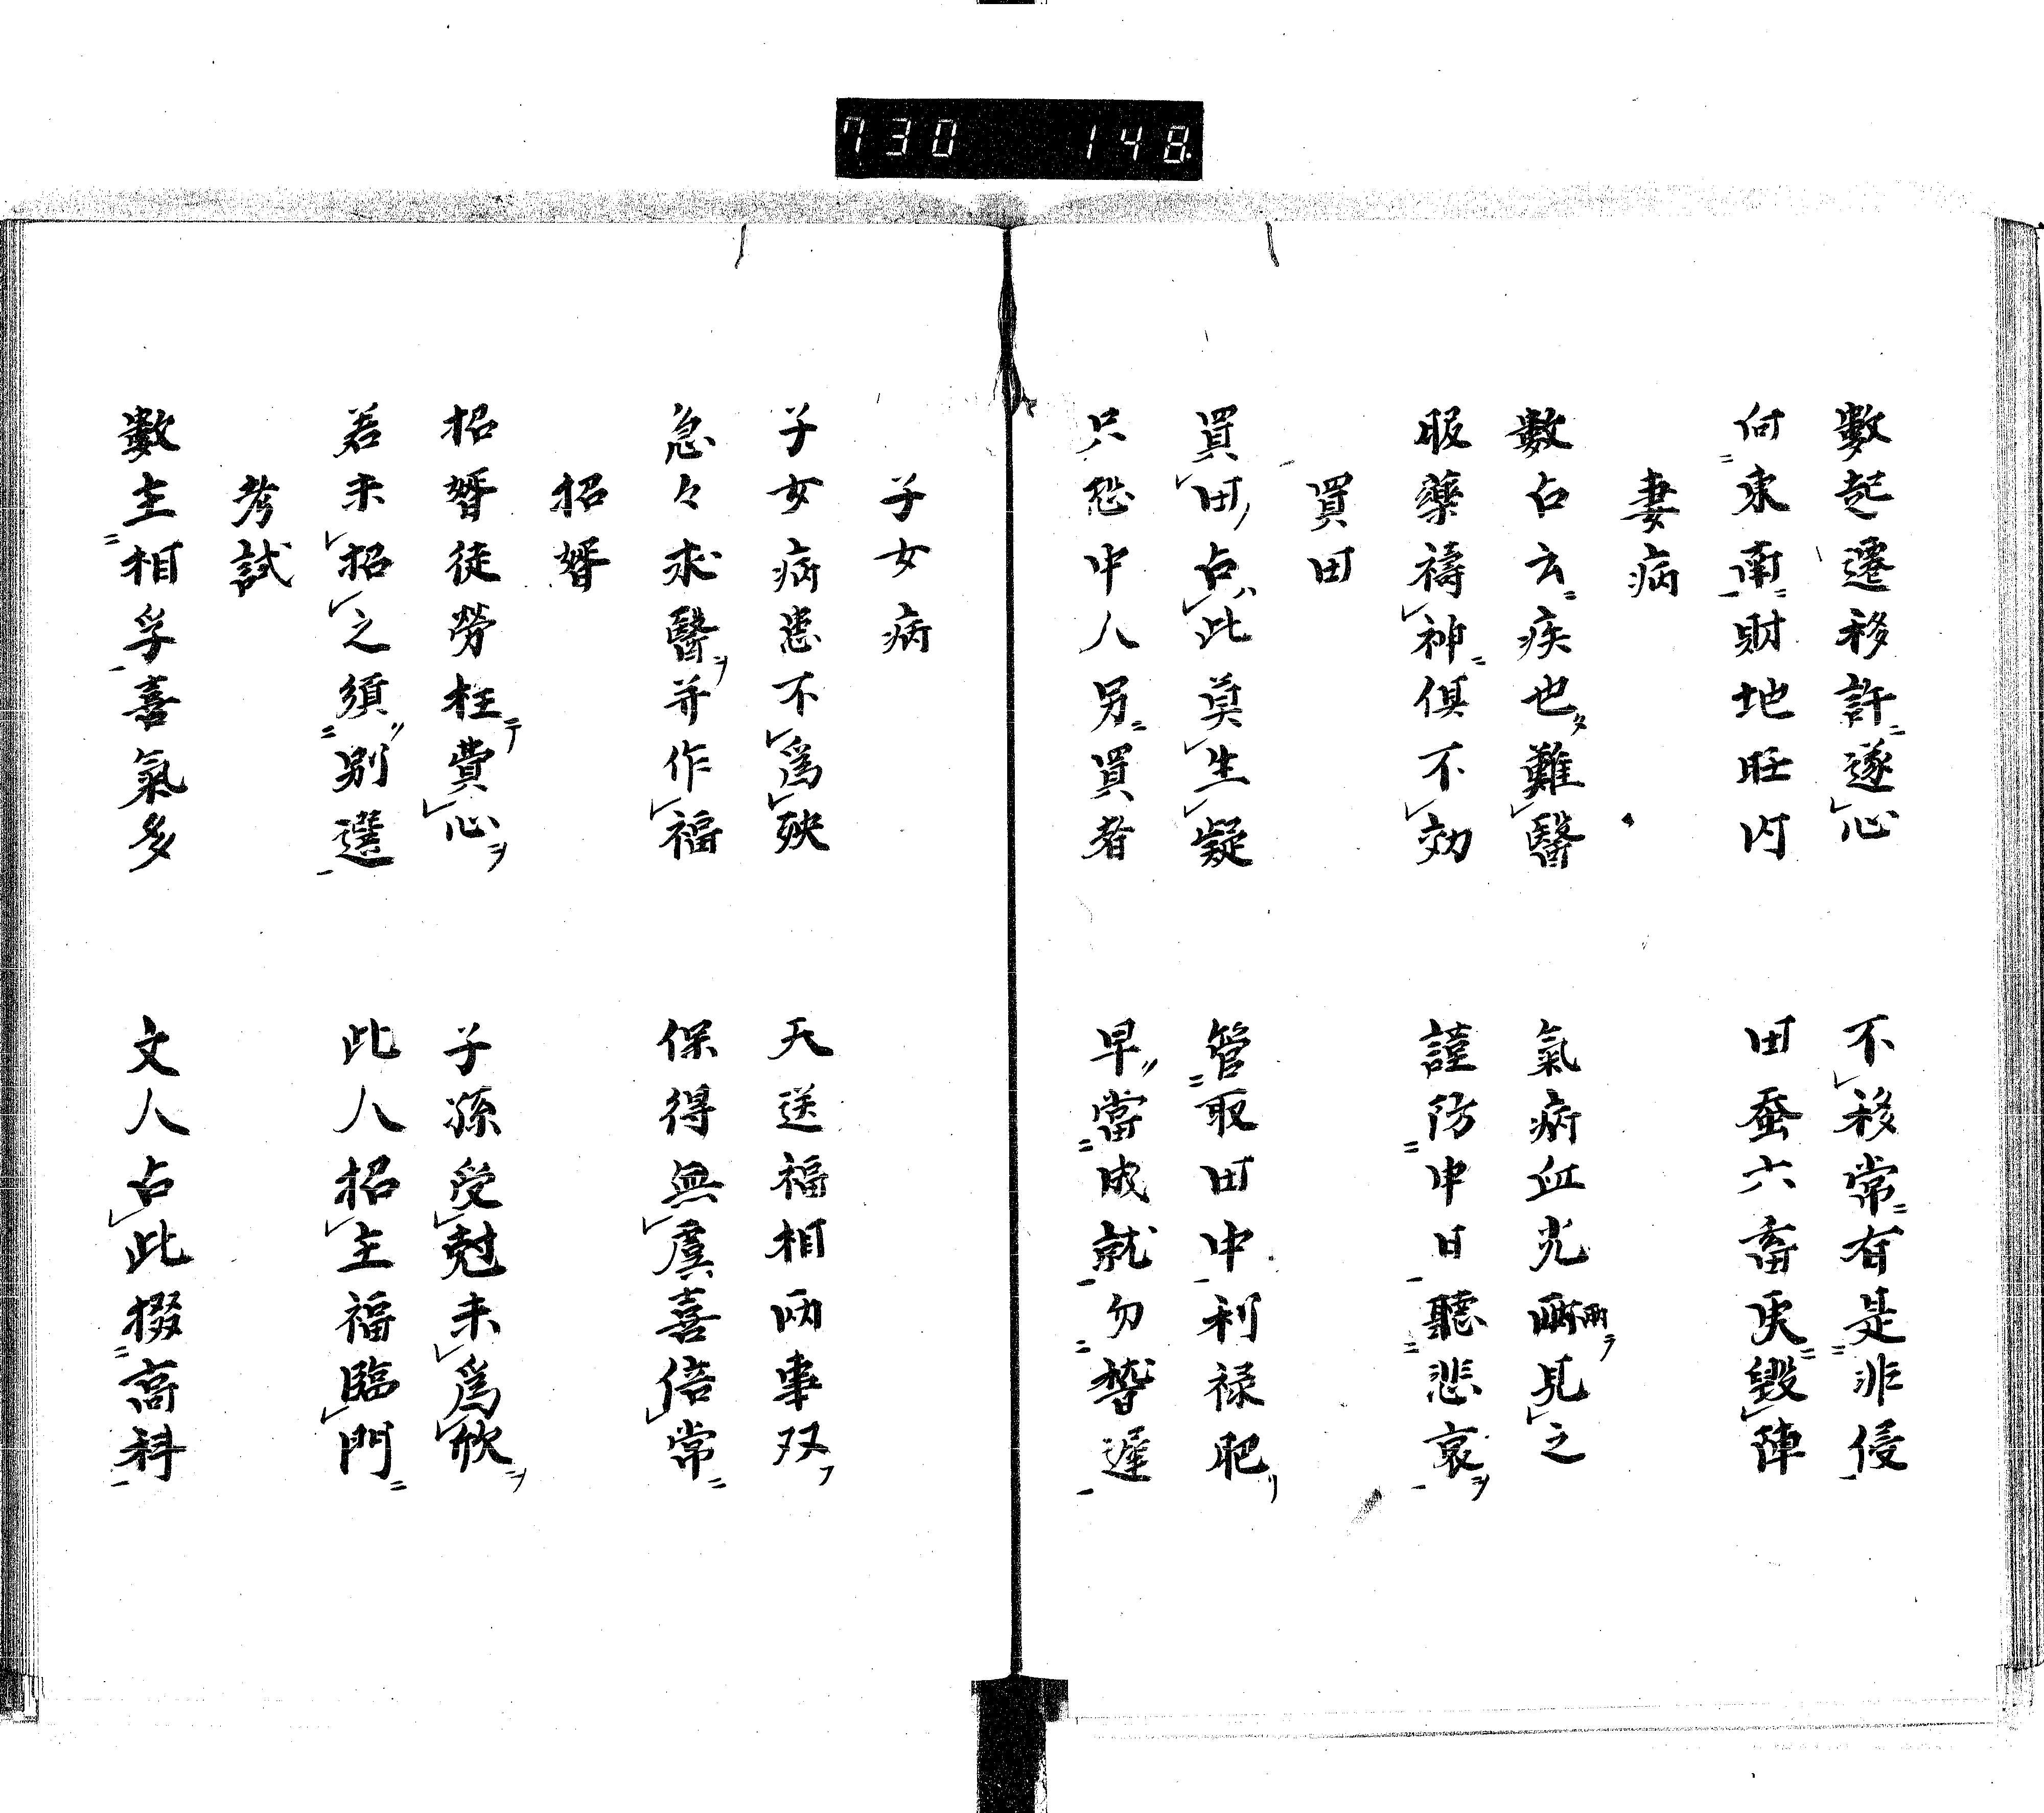 730 148
數起遷移許遂心 不移常有是非侵
向東南財地旺内 田蚕六畜更毀陣
妻病
數占云疾也難醫 氣病血光兩見之
服藥禱神俱不効 謹防申日聽悲哀
買田
買田占此莫生凝 管取田中利禄肥
只恐中人另買者 早當成就勿暫遲
子女病
子女病患不為殃 天送福相両事双
急々求醫并作福 保得無虞喜倍常
招婿
招婿徒勞枉費心 子孫受尅未為欣
若未招之須別選 此人招主福臨門
考試
數主相孚喜氣多 文人占此掇高科